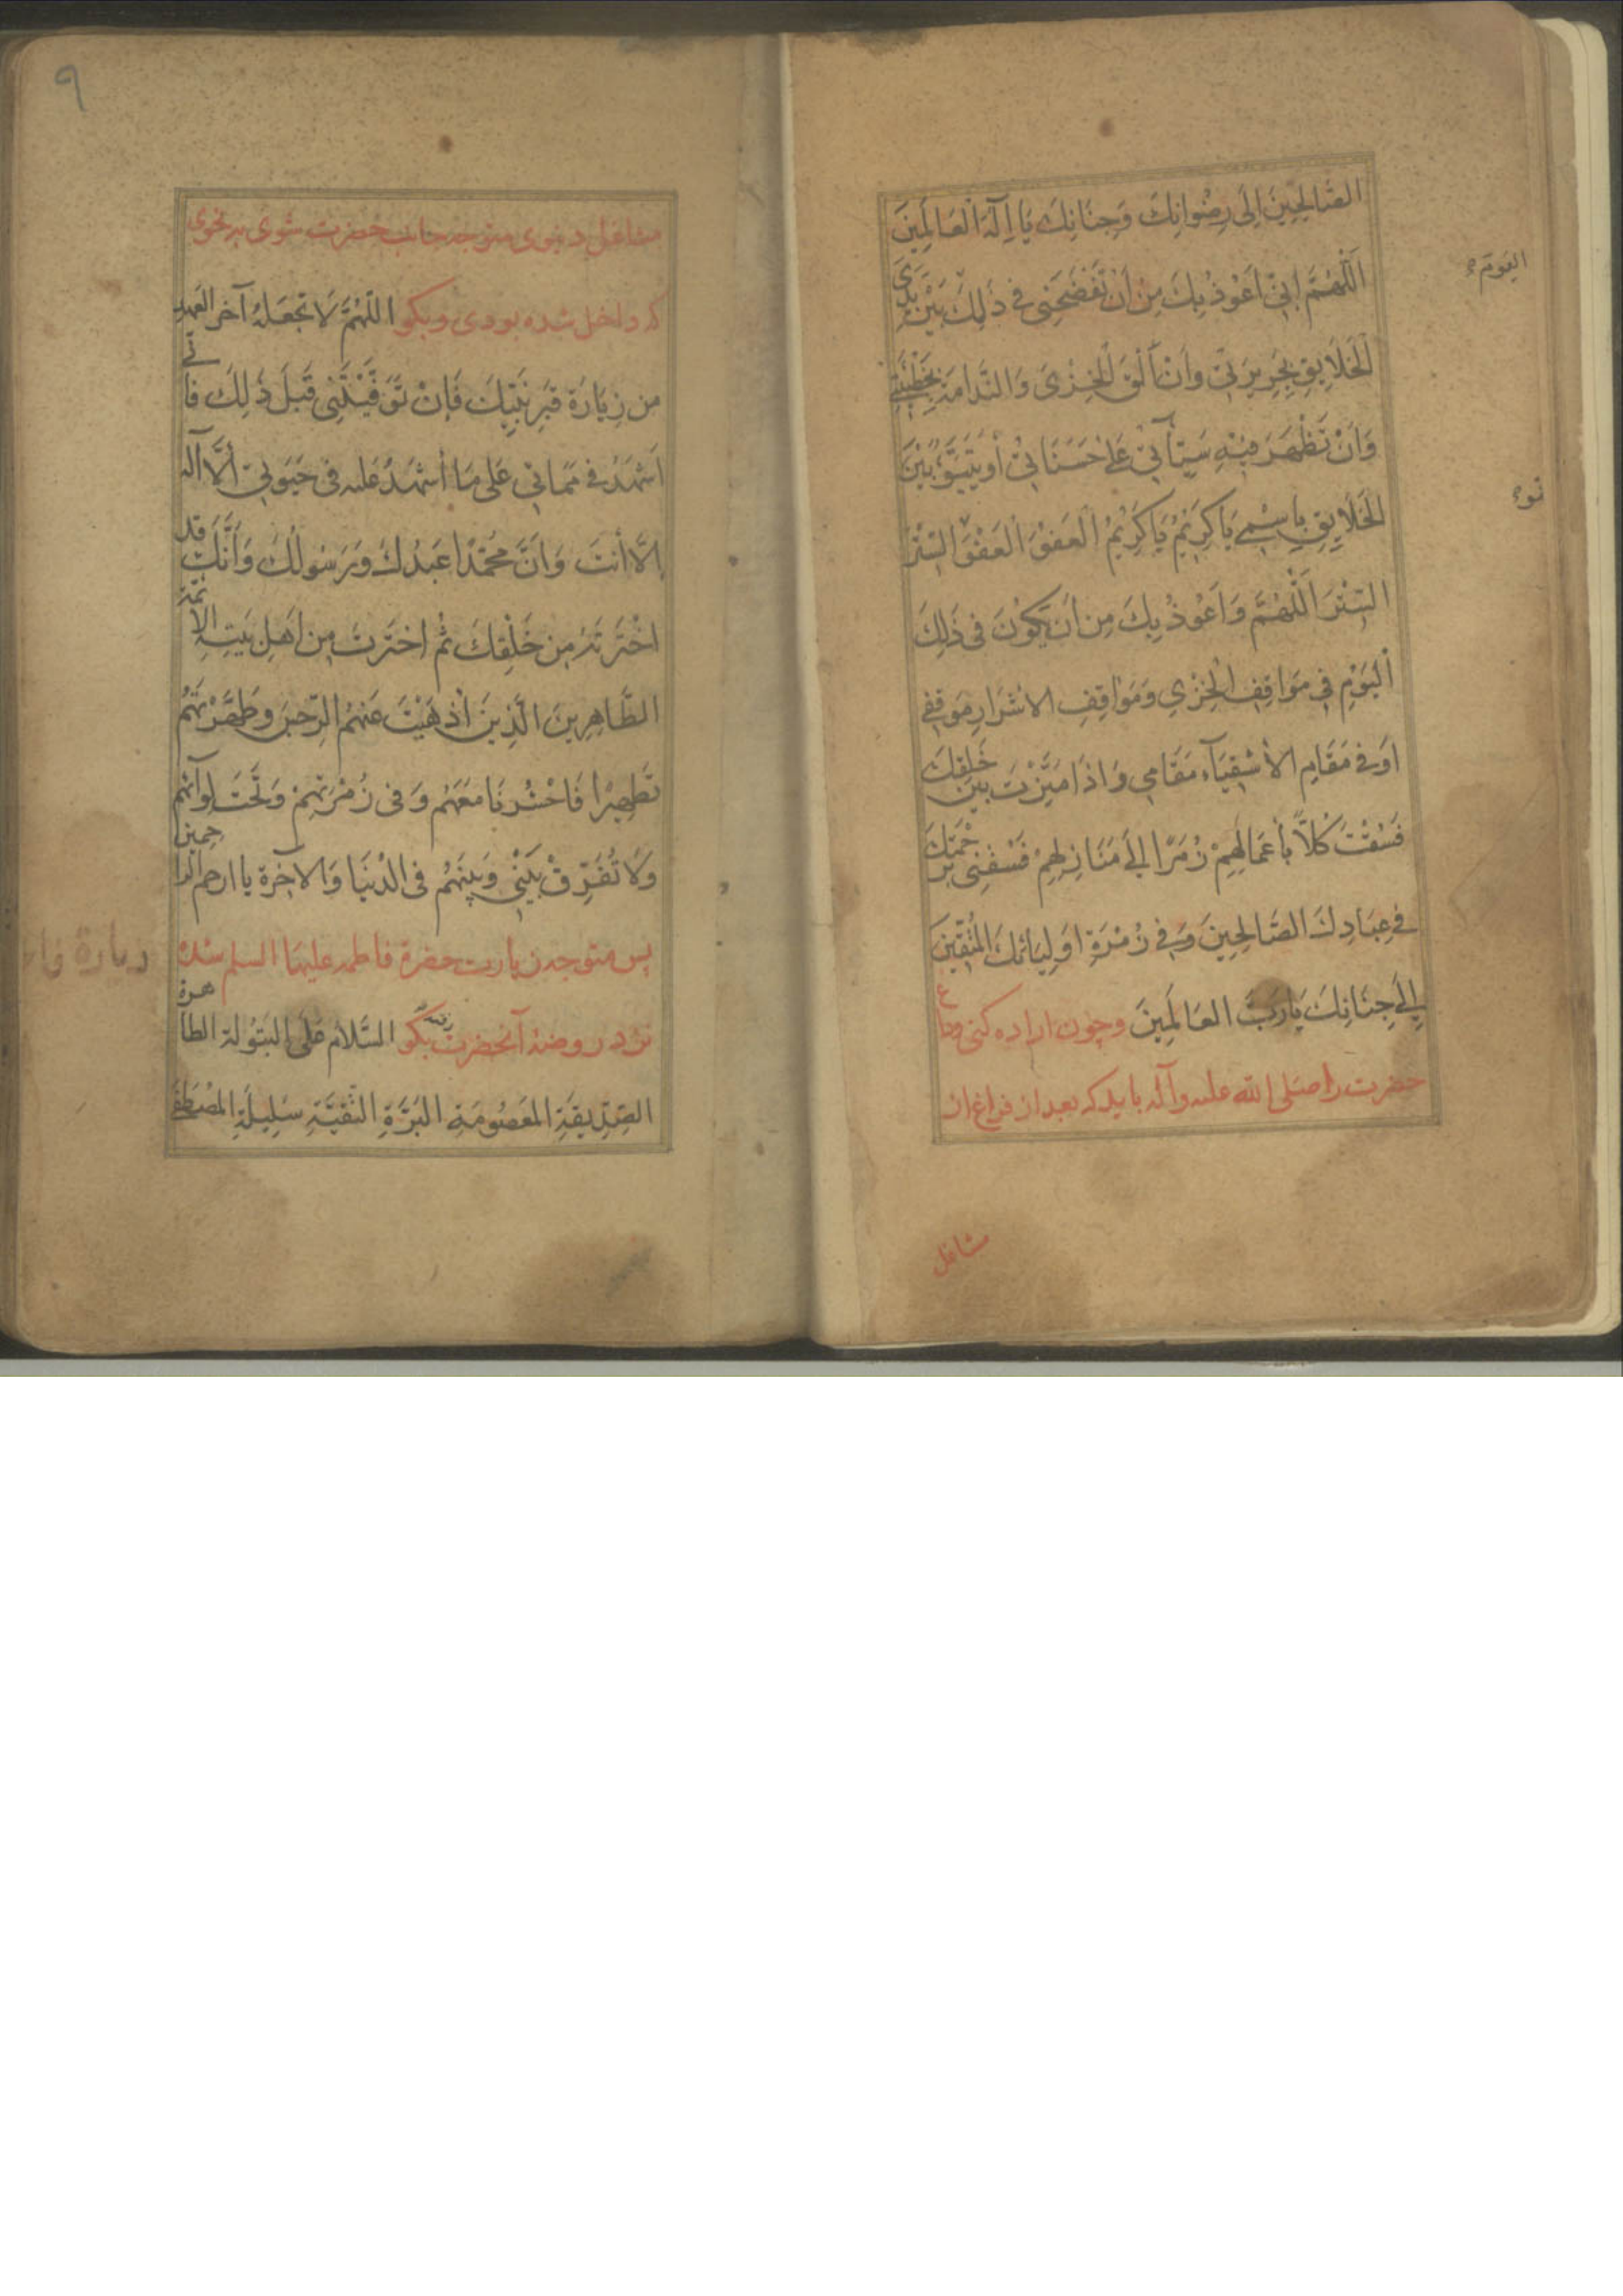 الصَّالِحِينَ اِلَى رِضْوَانِكَ وَجِنَانِكَ يَا اِلَهَ الْعَالَمِينَ
اَللّٰهُمَّ اِنّي اَعُوذُ بِكَ مِنْ اَنْ تَفْضَحَنِي فِي ذَلِكَ بَيْنَ يَدَيِ
اليوم
الْخَلَايِقِ بِجَرِيرَتي وَاَنْ اَلْقَى الْخِزْيَ وَالنَّدَامَةَ بِخَطِيئَتِي
وَاَنْ تَظْهَرَ فِيْهِ سَيِّآتي عَلَى حَسَنَاتي اَو يَتَبَوَّ بَيْنَ
نوء
الْخَلَايِقِ بِاسْمِي يَا كَرِيْمُ يَا كَرِيْمُ اَلْعَفْوَ اَلْعَفْوَ السَّتْرَ
السَّتْرَ اَللّٰهُمَّ وَاَعُوذُ بِكَ مِنْ اَنْ يَكُونَ فِي ذَلِكَ
اَلْيَوْمِ فِي مَوَاقِفِ الْخِزْيِ وَمَوَاقِفِ الاَشْرَارِ مَوْقِفِي
اَوْ فِي مَقَامِ الاَشْقِيَآءِ مَقَامِي وَاِذَا مَيَّزْتَ بَيْنَ خَلْقِكَ
فَسُقْتَ كُلاًّ بِأَعْمَالِهِمْ زُمَرًا اِلَى مَنَازِلِهِمْ فَسُقْنِي بِرَحْمَتِكَ
فِي عِبَادِكَ الصَّالِحِينَ وَفِي زُمْرَةِ اَوْلِيَائِكَ الْمُتَّقِينَ
اِلَى جِنَانِكَ يَارَبَّ الْعَالَمِينَ وچون اراده كنى وداع
حضرت را صلى الله عليه وآله بايد كه بعد از فراغ از
مشاغل
٩
مشاغل دنيوى متوجه جانب حضرت شوى بر نحوى
كه داخل شده بودى وبكو اللّهُمَّ لَا تَجْعَلْهُ آخر العهد
من زِيَارَةِ قَبْرِ نَبِيِّكَ فَاِنْ تَوَفَّيْتَنِي قَبْلَ ذَلِكَ فَاِنّي
اَشْهَدُ فِي مَمَاتي عَلى مَا أشْهَدُ عَليه فِي حَيَوتي أَلَّا آله
اِلَّا أنتَ وَاَنَّ مُحَمَّدًا عَبْدُكَ وَرَسُولُكَ وَأَنَّكَ قد
اخْتَرْتَهُ مِن خَلْقِكَ ثم اختَرتَ مِن اَهلِ بَيتِهِ الائمة
الطَّاهِرِينَ الَّذِينَ اَذْهَبْتَ عَنهُم الرِّجسَ وَطَهَّرْتَهُم
تَطهِيْرا فَاحْشُرنَا مَعَهُم وَفي زُمْرَتِهِمْ وَتَحْتَ لِوَآئهم
وَلَا تُفَرِّقْ بَيْنِي وَبَينَهُم فِي الدُنْيَا وَالاخِرة يا ارحم الراحمين
پس متوجه زيارت حضرة فاطمه عليها السلم شده
زيارة فا
نزد روضهٔ آنحضرت بكو السَّلام عَلَى البَتُولة الطاهرة
الصِّدِّيقَةِ المَعصُومَةِ البَرَّةِ التَّقيَّةِ سَلِيلَةِ المُصْطَفَى